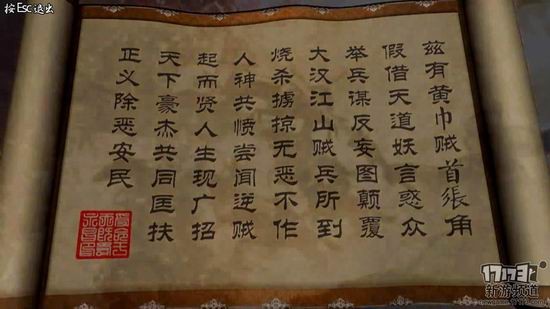 按Esc退出
兹有黄巾贼首张角
假借天道妖言惑众
举兵谋反妄图颠覆
大汉江山贼兵所到
烧杀掳掠无恶不作
人神共愤尝闻逆贼
起而贤人生现广招
天下豪杰共同匡扶
正义除恶安民
17173
新游频道
newgame.17173.com